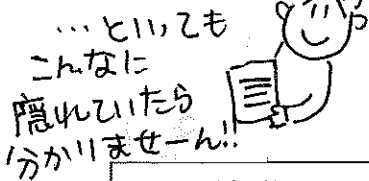 …といっても
こんなに
隠れていたら
分かりませーん!!